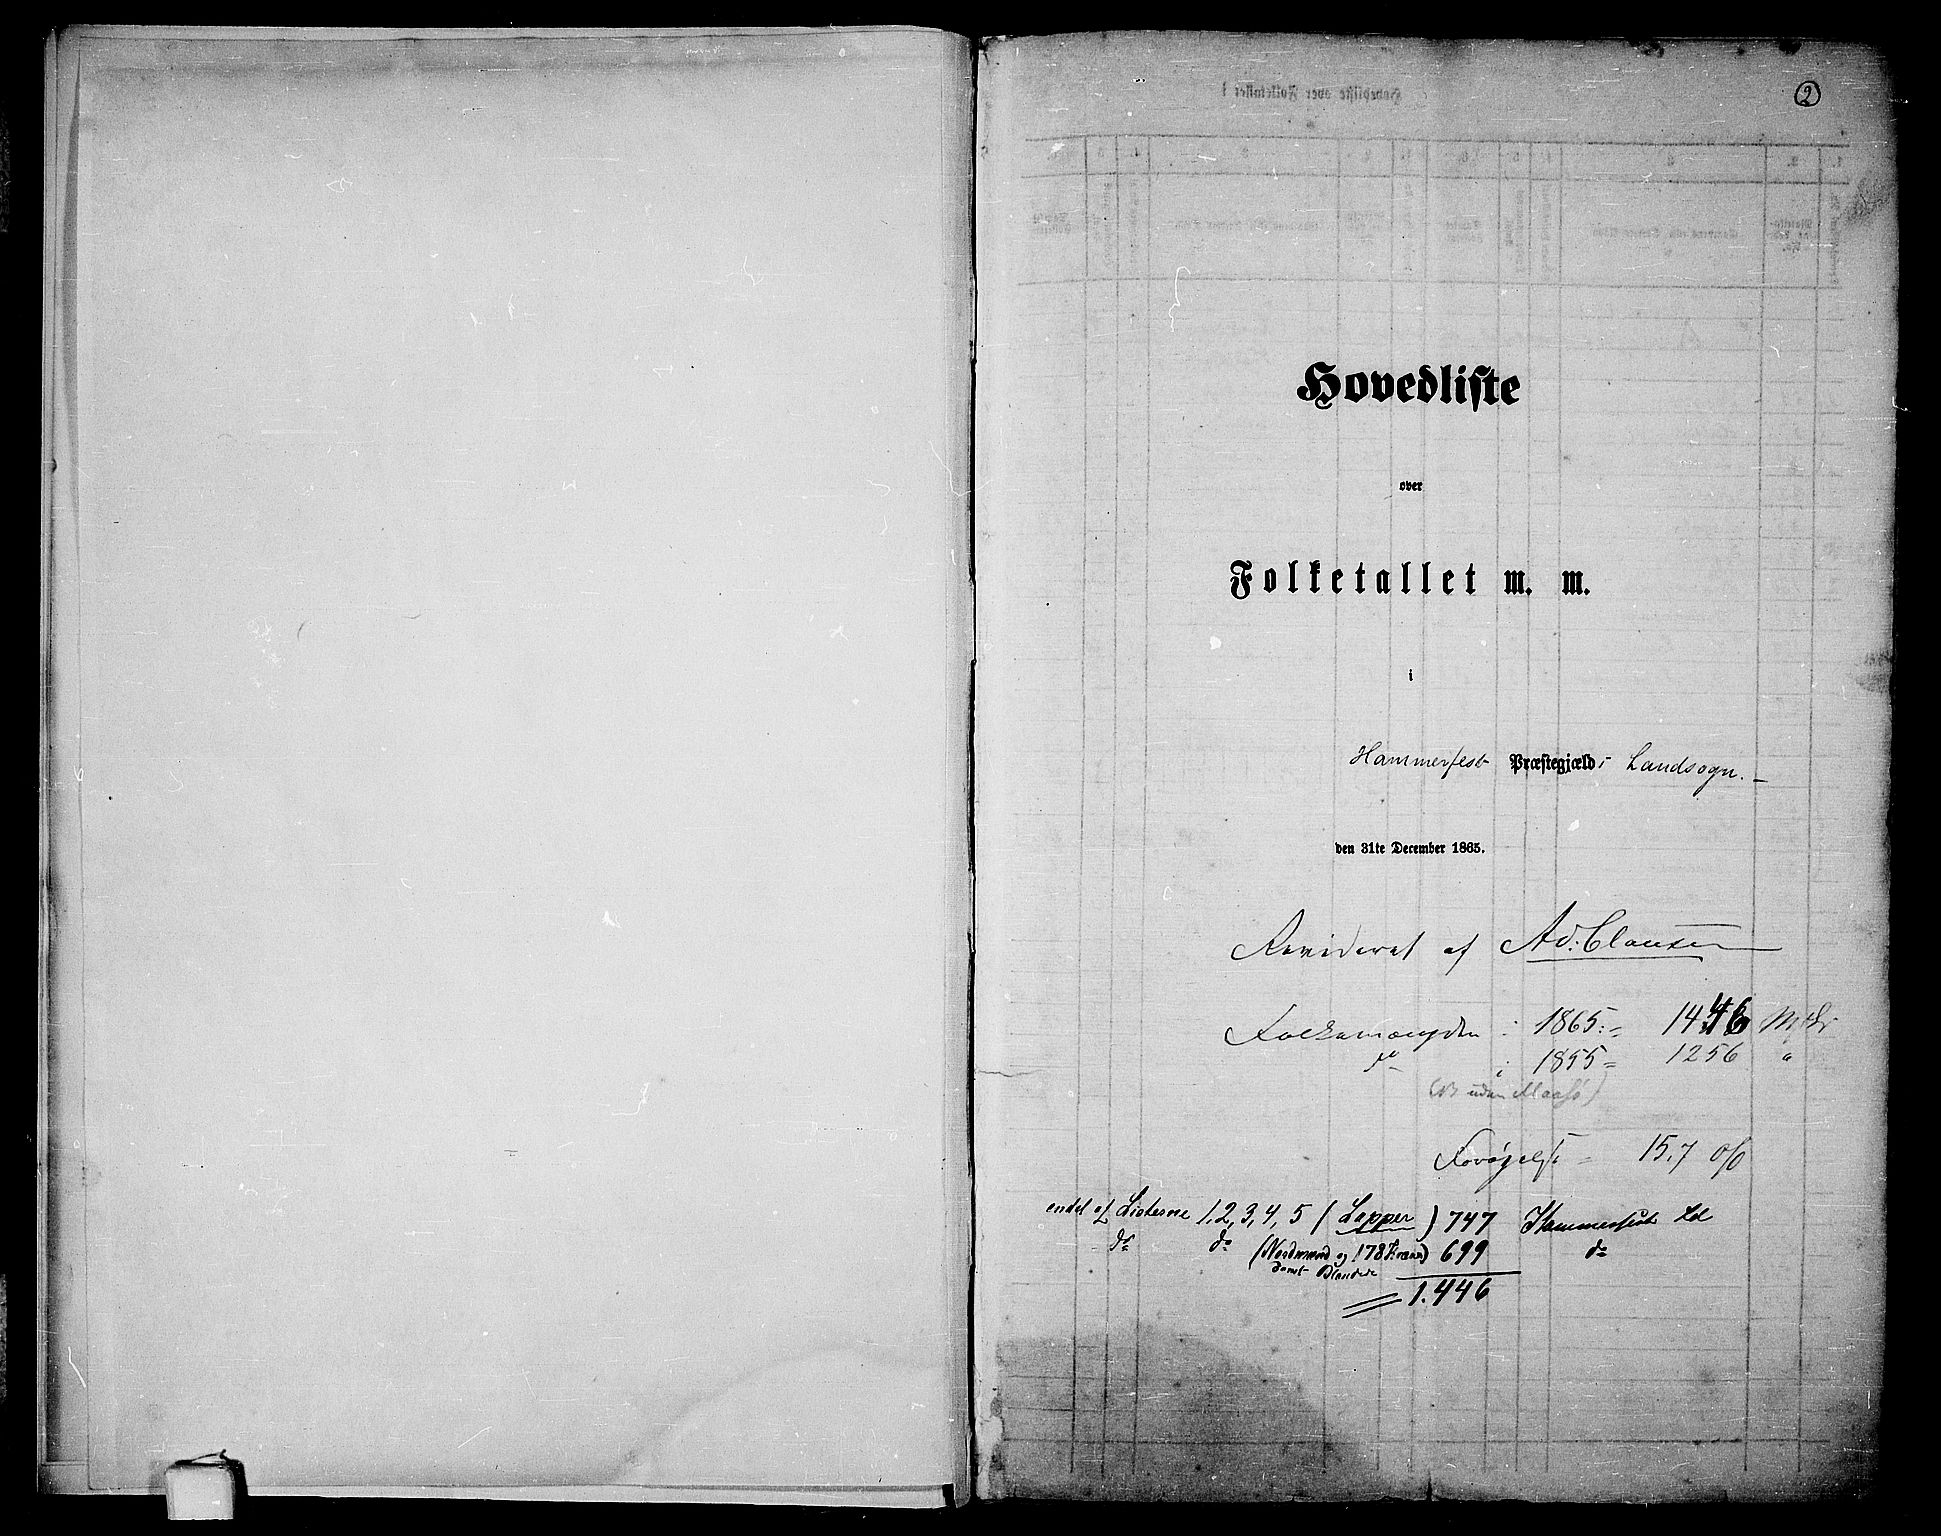 2
Hovedliste
over
Folketallet m. m.
i
Hammerfest Præstegjæld, Landsogn.
den 31te December 1865.
Revideret af Ad. Clausen
Folkemængden i 1865 = 1446 Msk
do i 1855 = 1256 "
(uden Maasø)
Forøgelse = 15,7 o/o
endel af Listerne 1, 2, 3, 4, 5 (Lapper) 747 Hammerfest Ld
do do (Nordmænd og 178 Kvæner) 699 do
samt Blandede
1.446